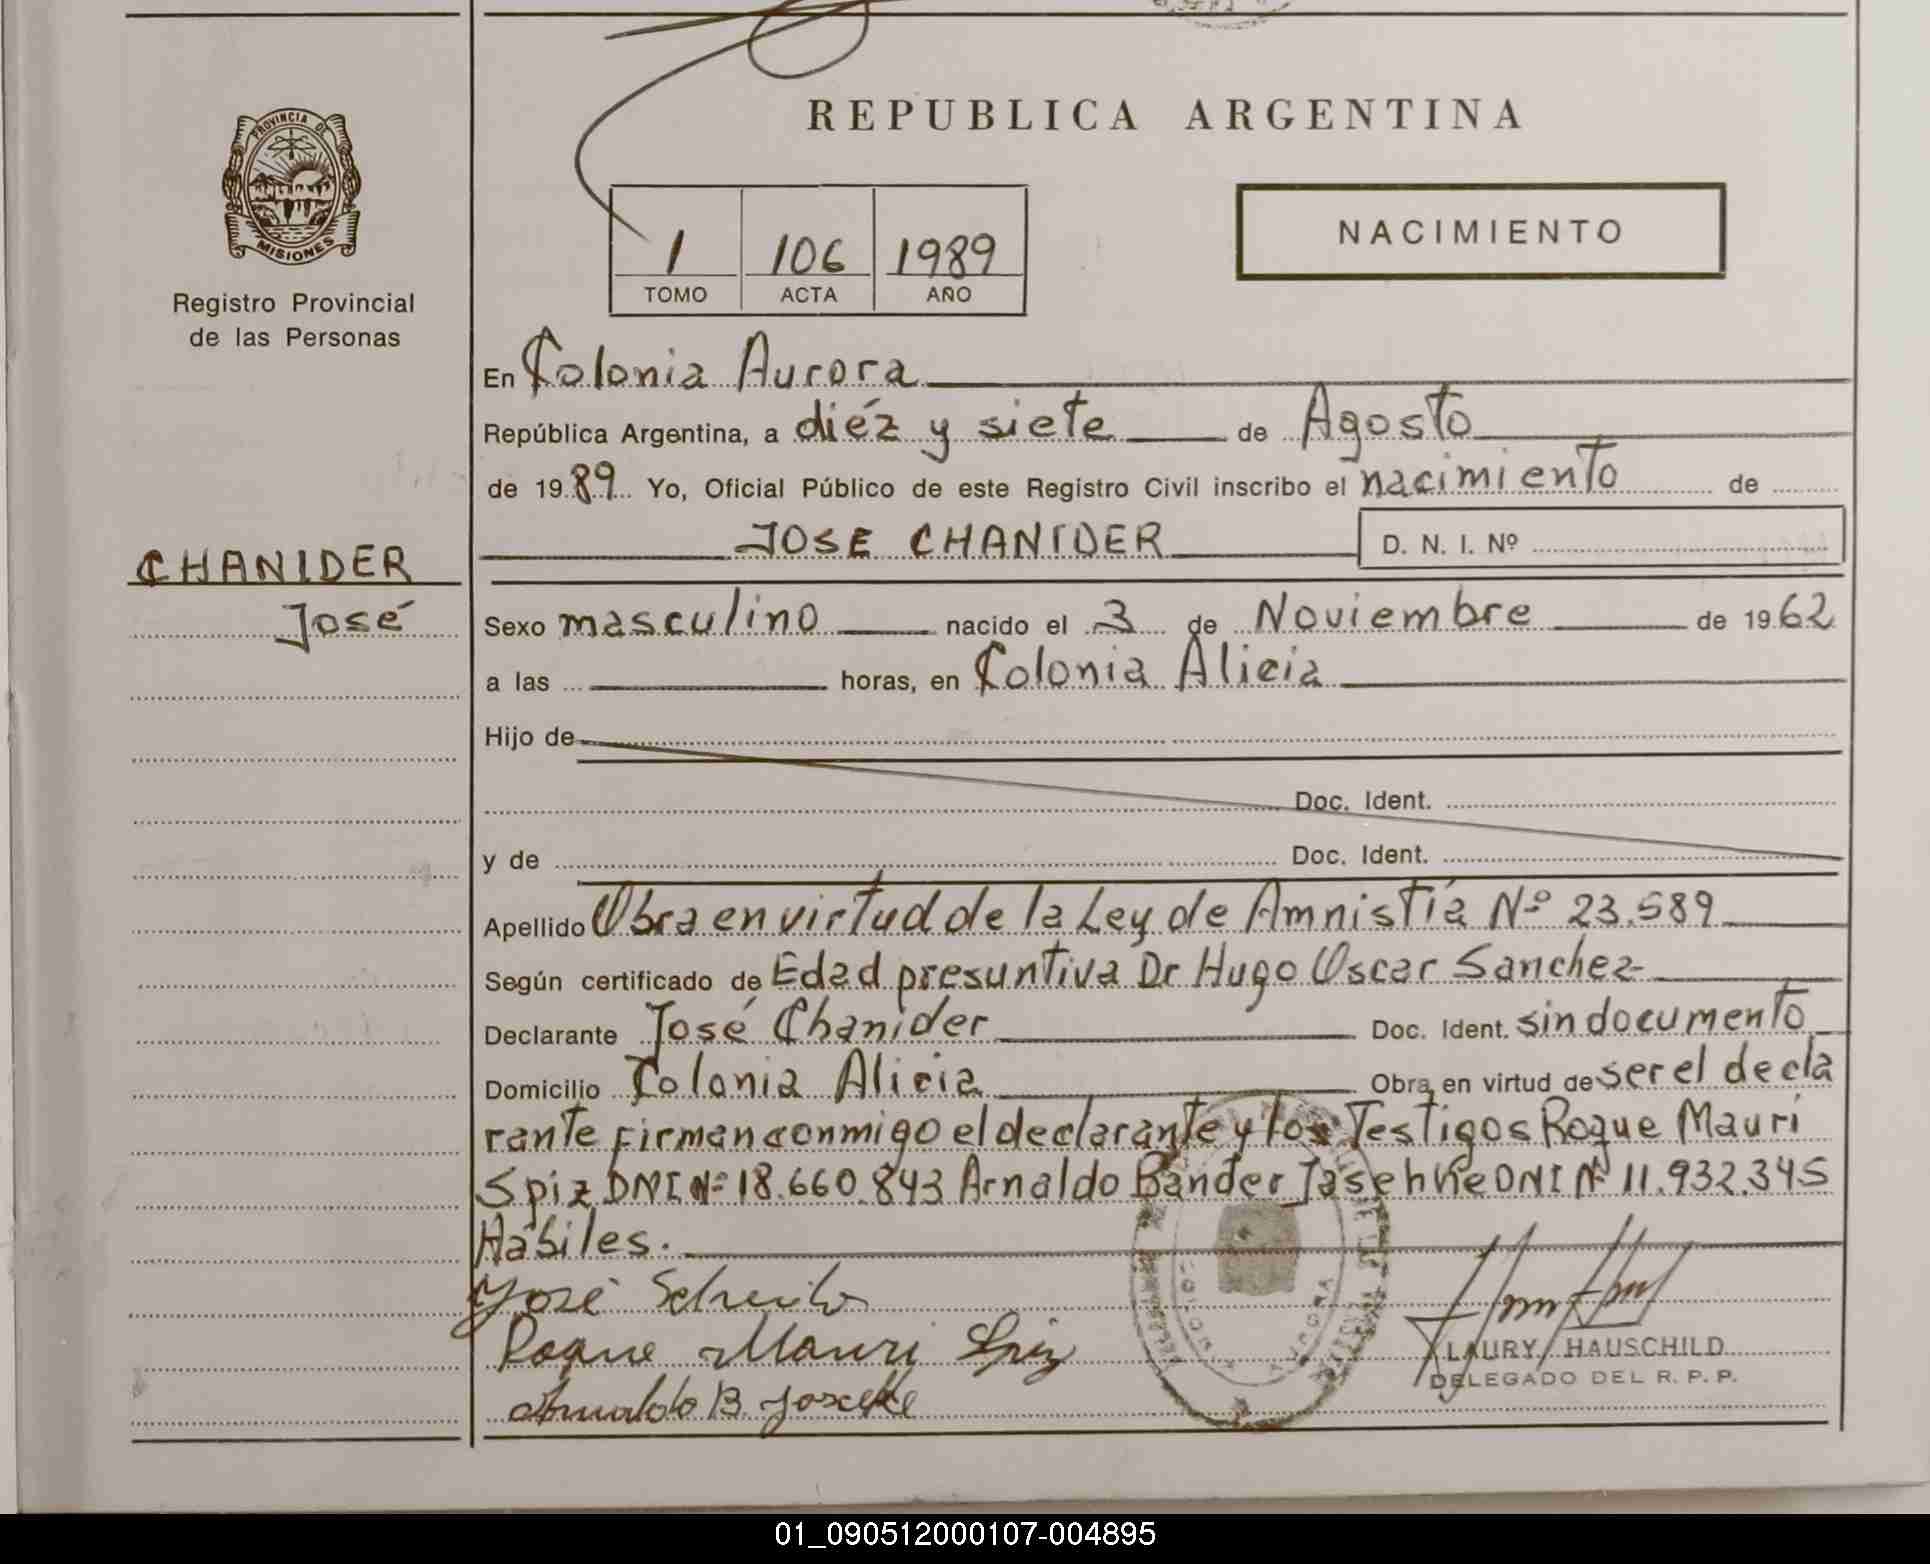 REPUBLICA ARGENTINA
PROVINCIA DE
MISIONES
Registro Provincial
de las Personas
NACIMIENTO
1 106 1989
TOMO ACTA AÑO
En Colonia Aurora
República Argentina, a diéz y siete de Agosto
de 1989 Yo, Oficial Público de este Registro Civil inscribo el nacimiento de
JOSE CHANIDER D. N. I. Nº
CHANIDER
José
Sexo masculino nacido el 3 de Noviembre de 1962
a las horas, en Colonia Alicia
Hijo de
Doc. Ident.
y de Doc. Ident.
Apellido Obra en virtud de la Ley de Amnistía Nº 23.589
Según certificado de Edad presuntiva Dr Hugo Oscar Sanchez
Declarante José Chanider Doc. Ident. sin documento
Domicilio Colonia Alicia Obra en virtud de ser el decla
rante firman conmigo el declarante y los Testigos Roque Mauri
Spiz DNI Nº 18.660.843 Arnaldo Bander Jasehke DNI Nº 11.932.345
Habiles.
José
Roque Mauri Spiz
Arnaldo B.
LAURY HAUSCHILD
DELEGADO DEL R. P. P.
01_090512000107-004895